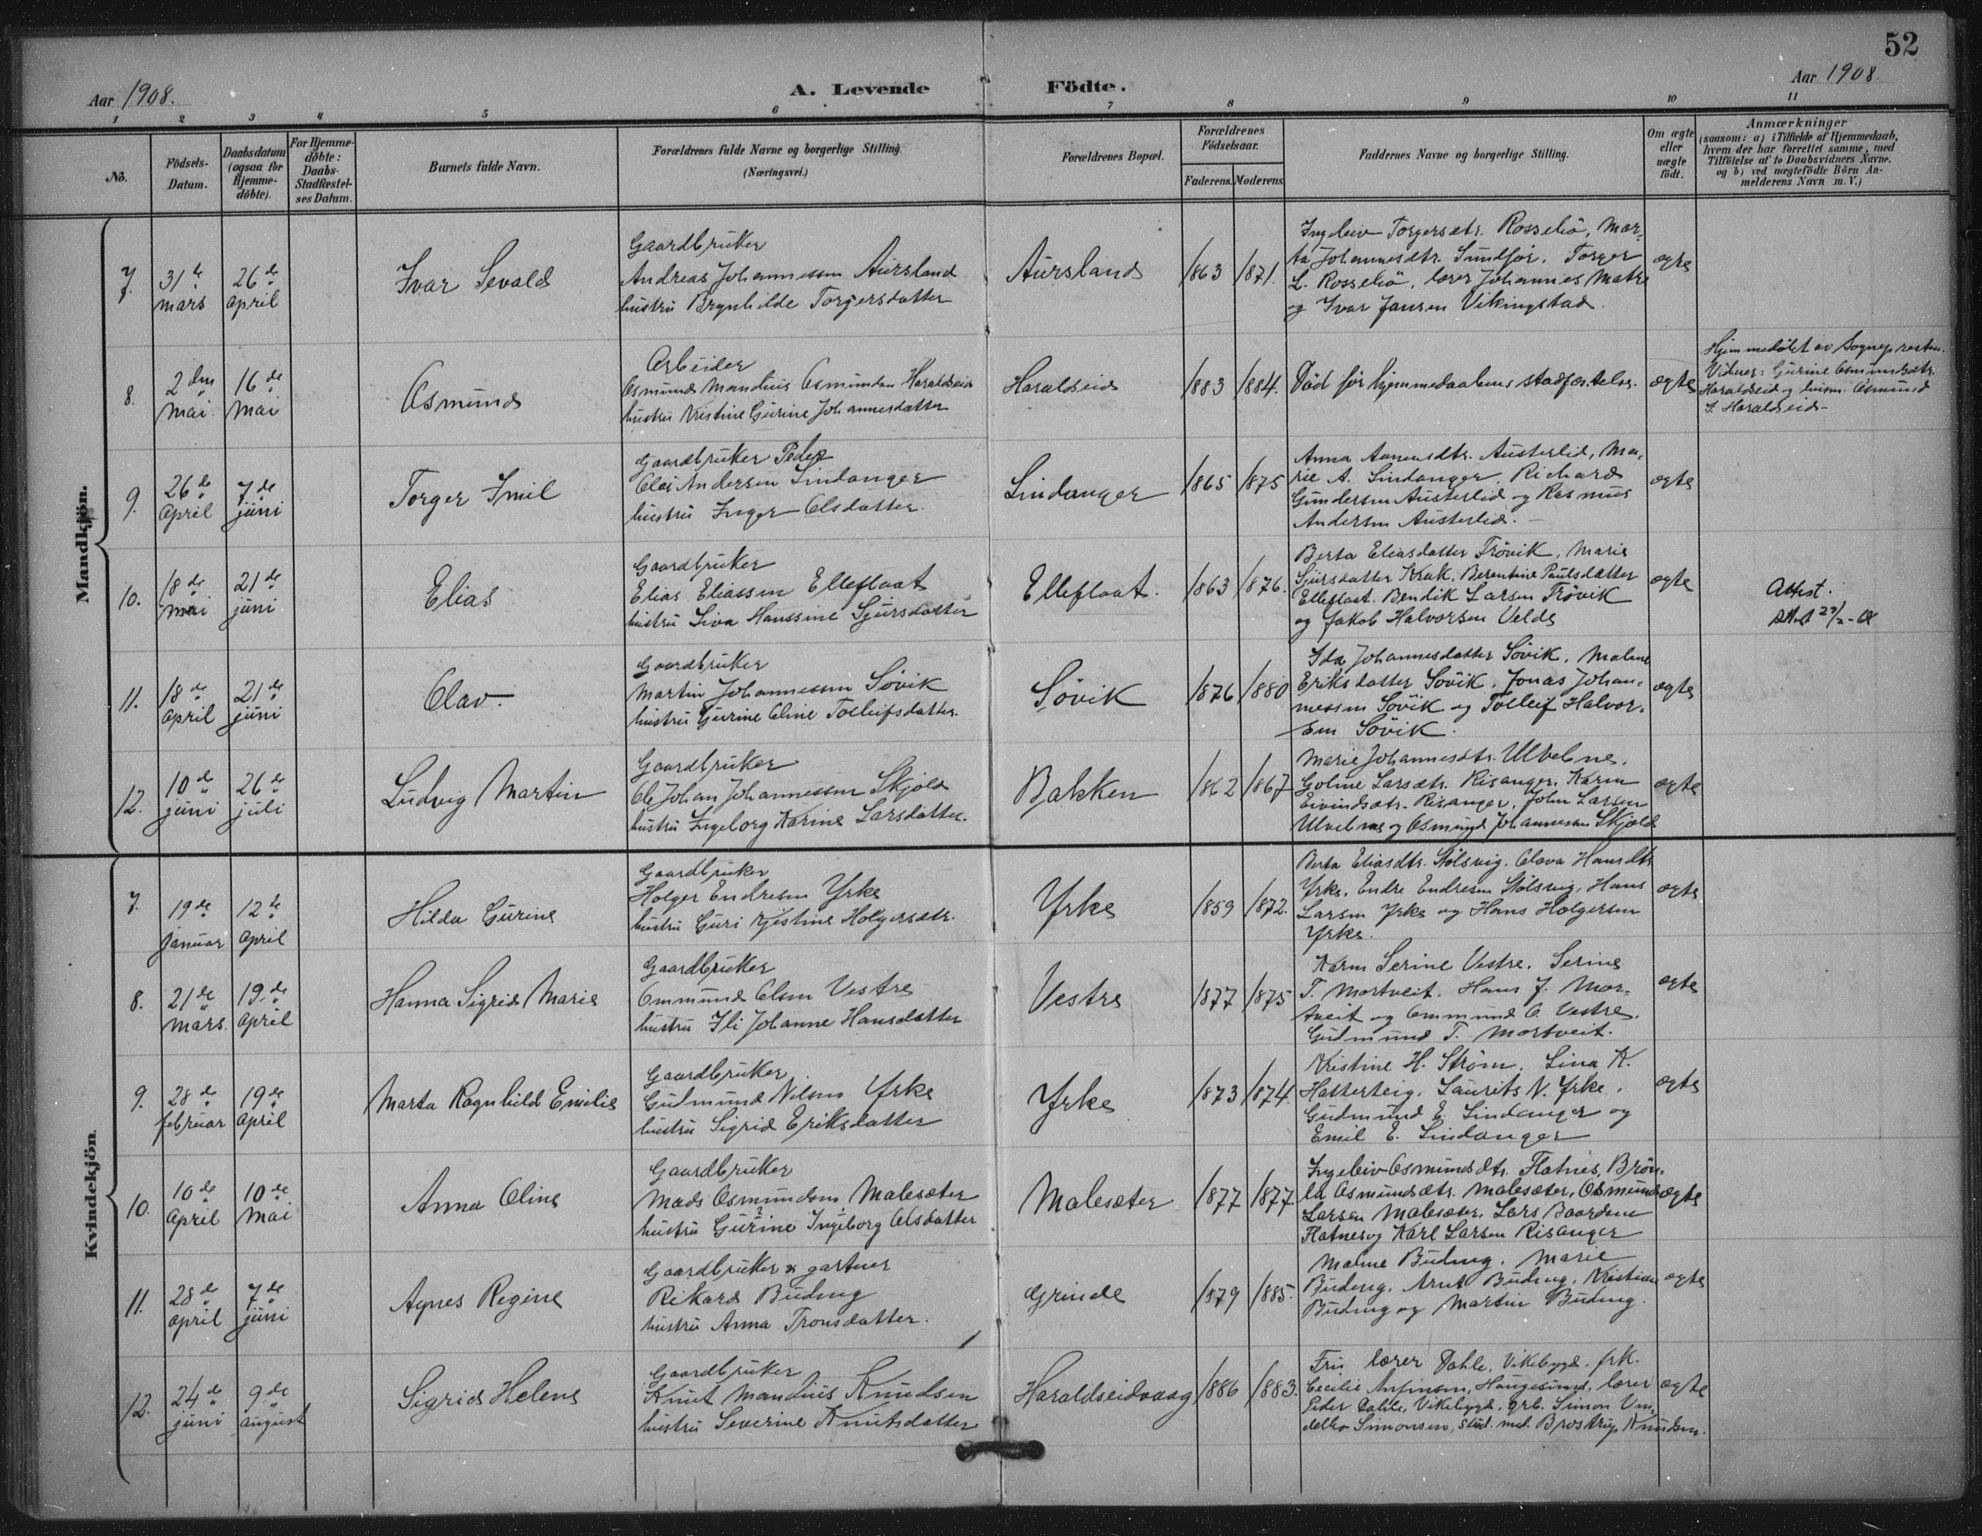 52
Aar 1908.
A. Levende Födte.
Aar 1908.
1 2 3 4 5 6 7 8 9 10 11
No.
Födsels-Datum.
Daabsdatum (ogsaa for Hjemme-döbte).
For Hjemme-döbte: Daabs-Stadfæstel-ses Datum.
Barnets fulde Navn.
Forældrenes fulde Navne og borgerlige Stilling.
(Næringsvei.)
Forældrenes Bopæl.
Forældrenes Födselsaar.
Faderens. Moderens
Faddernes Navne og borgerlige Stilling.
Om ægte eller uægte födt.
Anmærkninger
(saasom: a) i Tilfælde af Hjemmedaab,
hvem der har forrettet samme, med
Tilföielse af to Daabsvidners Navne.
og b) ved uægtefödte Börn An-
melderens Navn m. V.)
Mandkjön.
7. 31te mars 26de april
Ivar Sevald
Gaardbruker
Andreas Johannessen Aursland
hustru Brynhilde Torgersdatter
Aursland
1863 1871.
Ingeleiv Torgersdtr. Rosseliö, Mar-
ta Johannesdtr. Sundför. Torger
L. Rosseliö, lærer Johannes Matre
og Ivar Jansen Vikingstad.
ægte
8. 2den mai 16de mai
Osmund
Arbeider
Osmund Mandius Osmundsen Haraldseid
hustru Kristine Gurine Johannesdatter
Haraldseid
1883 1884.
Död før hjemmedaabens stadfæstelse.
ægte
Hjemmedöbt av Sognepresten.
Vidner: Gurine Osmundsdtr.
Haraldseid og Osmund
Haraldseid
9. 26de april 7de juni
Torger Emil
Gaardbruker Peder
Olai Andersen Lindanger
hustru Inger Olsdatter.
Lindanger
1865 1875
Anna Aanensdtr. Austerlid, Ma-
rie A. Lindanger, Richard
Gundersen Austerlid og Rasmus
Andersen Austerlid.
ægte
10. 18de mai 21de juni
Elias
Gaardbruker
Elias Eliassen Elleflaat
hustru Siva Hanssine Sjursdatter
Elleflaat.
1863 1876.
Berta Eliasdatter Trövik, Marie
Sjursdatter Krak. Berentine Paulsdatter
Elleflaat. Bendik Larsen Trövik
og Jakob Halvorsen Velde
ægte
Attest.
11. 18de april 21de juni
Olav.
Gaardbruker
Martin Johannessen Sövik
hustru Gurine Oline Tolleifsdatter.
Sövik
1876 1880
Ida Johannesdatter Sövik, Malene
Eriksdatter Sövik. Jonas Johan-
nessen Sövik og Tolleif Halvor-
sen Sövik.
ægte
12. 10de juni 26de juli
Ludvig Martin
Gaardbruker
Ole Johan Johannessen Skjold
hustru Ingeborg Karine Larsdatter.
Bakken
1862 1867
Marie Johannesdtr. Ulvelne.
Golene Larsdtr. Risanger. Karen
Eivindsdtr. Risanger. John Larsen
Ulvelne og Osmund Johannessen Skjold
ægte
Kvindekjön.
7. 19de januar 12te april
Hilda Gurine
Gaardbruker
Holger Endresen Yrke
hustru Guri Kjistine Holgersdtr.
Yrke
1859 1872.
Berta Eliasdtr. Stölsvig. Olava Hansdtr.
Yrke. Endre Endresen Stölsvig, Hans
Larsen Yrke og Hans Holgersen
Yrke.
ægte
8. 21de mars. 19de april
Hanna Sigrid Marie
Gaardbruker
Ommund Olsen Vestre
hustru Ili Johanne Hansdatter
Vestre
1877 1875
Karen Serine Vestre. Serine
T. Mortveit. Hans J. Mor-
tveit og Ommund O. Vestre.
Gudmund T. Mortveit.
ægte
9. 28de februar 19de april
Marta Ragnhild Emilie
Gaardbruker
Gudmund Nilsen Yrke
hustru Sigrid Eriksdatter
Yrke
1873 1874.
Kristine H. Ström. Lina K.
Hatterteig. Laurits N. Yrke.
Gudmund E. Lindanger og
Emil E. Lindanger
ægte
10. 10de april 10de mai
Anna Oline
Gaardbruker
Mads Osmundsen Malesæter
hustru Gurine Ingeborg Olsdatter
Malesæter
1877 1877.
Ingeleiv Osmundsdtr. Flatnes, Brön-
la Osmundsdtr. Malesæter, Osmund
Larsen Malesæter. Lars Baardsen
Flatnes og Karl Larsen Risanger
ægte
11. 28de april 7de juni
Agnes Regine
Gaardbruker & gartner
Rikard Bueng
hustru Anna Tronsdatter.
Grinde
1879 1885.
Malene Bueng, Marie
Bueng, Arnt Bueng, Kristian
Bueng og Martin Bueng.
ægte
12. 24de juni 9de august
Sigrid Helene
Gaardbruker
Knut Mandius Knudsen
hustru Severine Knutsdatter
Haraldseidvaag
1886 1883.
Fru lærer Dahle, Vikebygd. frk.
Cecilie Arfinsen, Haugesund, lærer
Peder Dahle, Vikebygd, grb. Simon Ven-
delbo Simonsen, stud. med. Brostrup Knudsen.
ægte